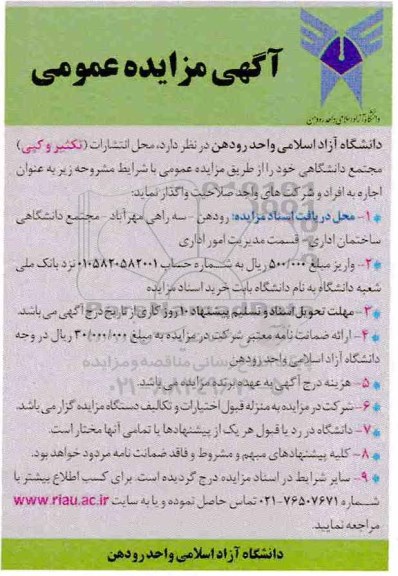 آگهی مزایده عمومی
دانشگاه آزاد اسلامی واحد رودهن
دانشگاه آزاد اسلامی واحد رودهن در نظر دارد، محل انتشارات (تکثیر و کپی)
مجتمع دانشگاهی خود را از طریق مزایده عمومی با شرایط مشروحه زیر به عنوان
اجاره به افراد و شرکت های واجد صلاحیت واگذار نماید:
*۱- محل دریافت اسناد مزایده: رودهن - سه راهی مهرآباد - مجتمع دانشگاهی
ساختمان اداری - قسمت مدیریت امور اداری
*۲- واریز مبلغ ۵۰۰/۰۰۰ ریال به شماره حساب ۰۱۰۵۸۲۰۵۸۲۰۰۱ نزد بانک ملی
شعبه دانشگاه به نام دانشگاه بابت خرید اسناد مزایده
*۳- مهلت تحویل اسناد و تسلیم پیشنهاد ۱۰ روز کاری از تاریخ درج آگهی می باشد.
*۴- ارائه ضمانت نامه معتبر شرکت در مزایده به مبلغ ۳۰/۰۰۰/۰۰۰ ریال در وجه
دانشگاه آزاد اسلامی واحد رودهن
*۵- هزینه درج آگهی به عهده برنده مزایده می باشد.
*۶- شرکت در مزایده به منزله قبول اختیارات و تکالیف دستگاه مزایده گزار می باشد.
*۷- دانشگاه در رد یا قبول هر یک از پیشنهادها یا تمامی آنها مختار است.
*۸- کلیه پیشنهادهای مبهم و مشروط و فاقد ضمانت نامه مردود خواهد بود.
*۹- سایر شرایط در اسناد مزایده درج گردیده است. برای کسب اطلاع بیشتر با
شماره ۷۶۵۰۷۶۷۱-۰۲۱ تماس حاصل نموده و یا به سایت www.riau.ac.ir
مراجعه نمایید.
دانشگاه آزاد اسلامی واحد رودهن